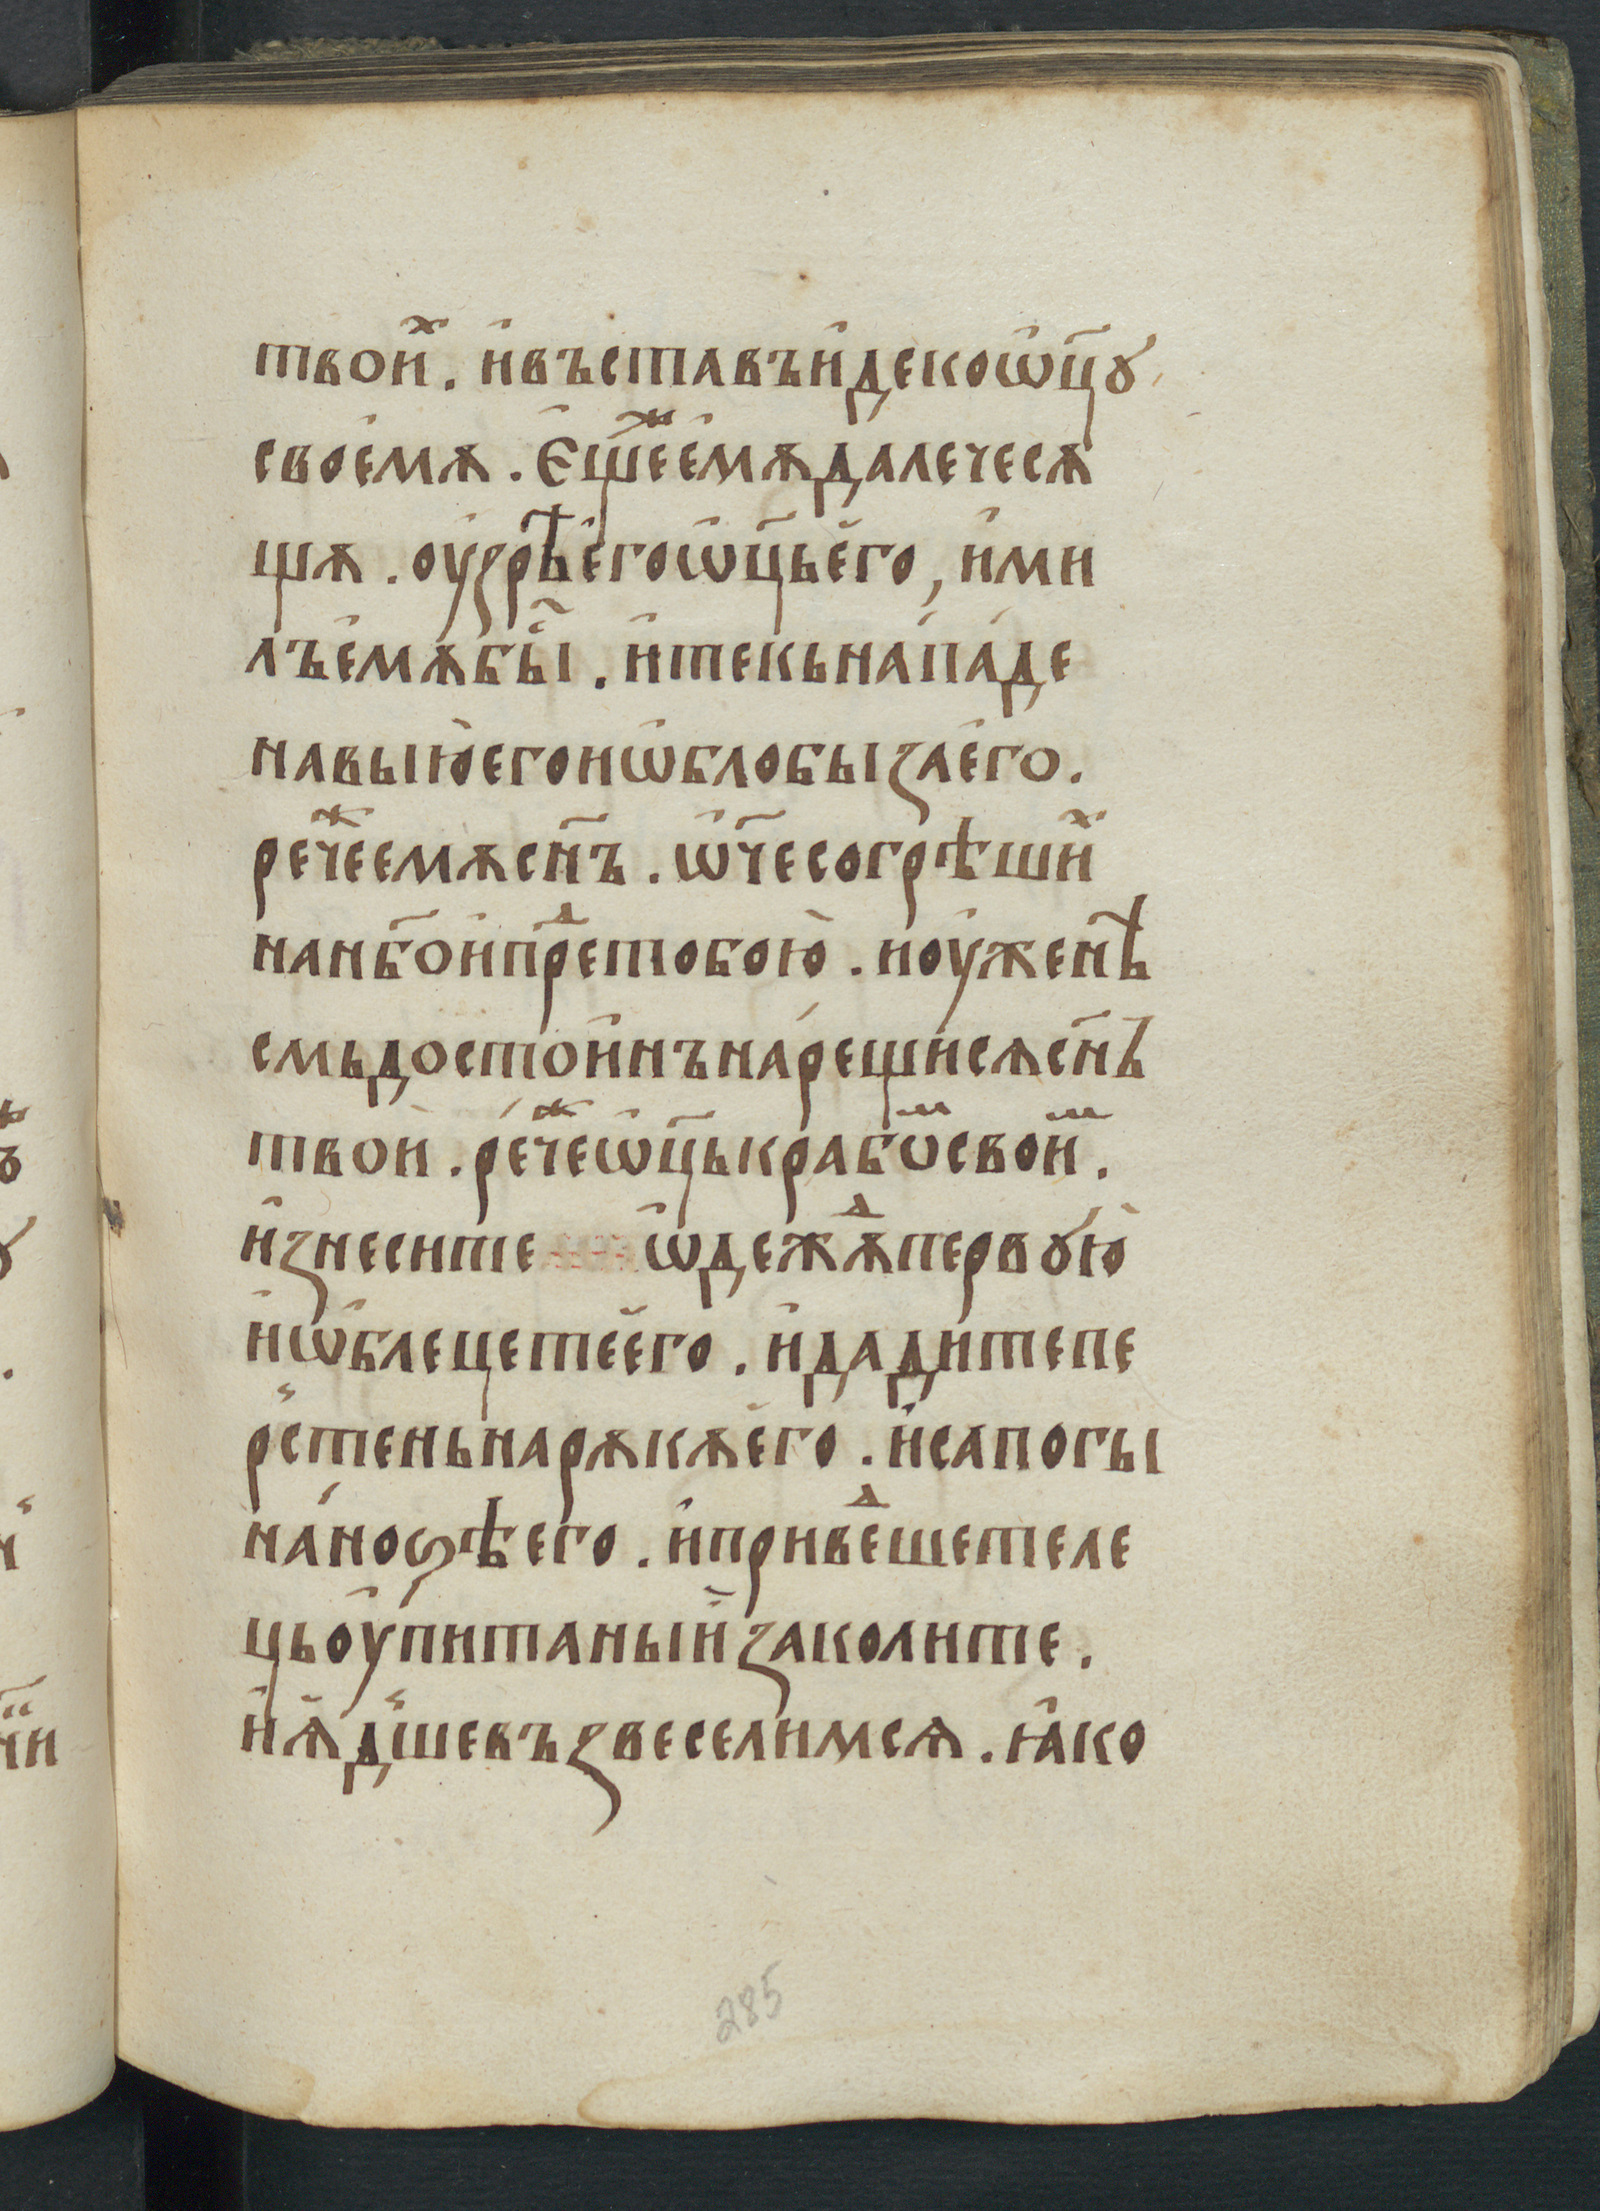 твоиⷯ҇. и҆въставъи҆декоѿц҃ꙋ
своемѫ. Е҆щеⷤе҆мѫдалечесѫ
щѫ. оузрѣе҆гоѿц҃ье҆го, и҆ми
лъе҆мѫбыⷭ҇. и҆текьнападе
навыюегоиѡ҆блобызае҆го.
речеⷤемѫсн҃ъ. ѿч҃есогрѣшиⷯ
нанб҃ои҆преⷣтобою. ноуженѣ
смьдостоинънарещисѧсн҃ъ
твои. речеⷤѿц҃ькрабѡⷨсвоиⷨ.
и҆знесите ѡ҆дежѫⷣпервꙋю
и҆ѡ҆блецетее҆го. и҆дадитепе
рⷭ҇теньнарѫкѫе҆го. и҆сапогы
наноѕѣего. и҆привеⷣшетеле
цьоупитаныйзаколите.
и҆ꙗдⷭ҇шевъзвеселимсѧ. ꙗ҆ко
285